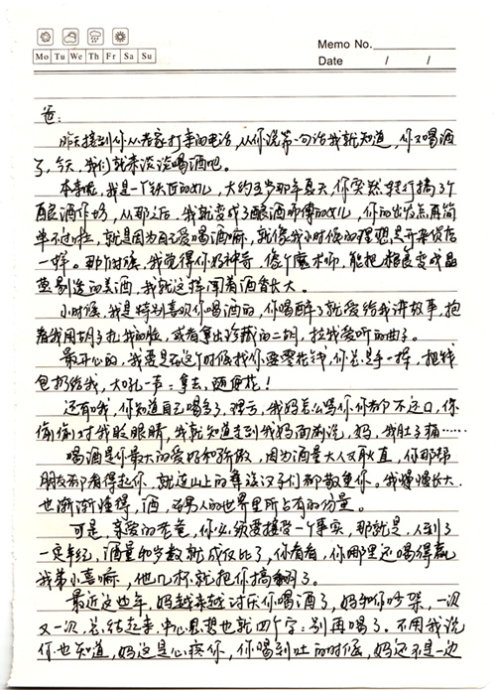 Memo No.
Mo Tu We Th Fr Sa Su
Date / /
爸:
昨天接到你从老家打来的电话,从你说第一句话我就知道,你又喝酒
了,今天,我们就来谈谈喝酒吧。
本来呢,我是一个铁匠的女儿,大约五岁那年夏天,你突然转行搞了个
酿酒作坊,从那之后,我就变成了酿酒师傅的女儿,你的出发点再简
单不过啦,就是因为自己爱喝酒嘛,就像我小时候的理想是开杂货店
一样。那个时候,我觉得你好神奇,像个魔术师,能把粮食变成晶
莹剔透的美酒,我就这样闻着酒香长大。
小时候,我是特别喜欢你喝酒的,你喝醉了就爱给我讲故事,抱
着我用胡子扎我的脸,或者拿出珍藏的二胡,拉我爱听的曲子。
最开心的,我要是在这个时候找你要零花钱,你总是手一挥,把钱
包扔给我,大吼一声:拿去,随便花!
还有哦,你知道自己喝多了,理亏,我妈怎么骂你你都不还口,你
偷偷对我眨眼睛,我就知道走到我妈面前说,妈,我肚子痛……
喝酒是你最大的爱好和骄傲,因为酒量大人又耿直,你那帮
朋友都看得起你,就连山上的彝族汉子们都敬重你。我慢慢长大,
也渐渐懂得,酒,在男人的世界里所占有的份量。
可是,亲爱的老爸,你必须要接受一个事实,那就是,人到了
一定年纪,酒量和岁数就成反比了,你看看,你哪里还喝得赢
我弟小喜嘛,他几杯就把你搞翻了。
最近这些年,妈越来越讨厌你喝酒了,妈和你吵架,一次
又一次,总结起来,中心思想也就四个字:别再喝了。不用我说
你也知道,妈这是心疼你,你喝到吐的时候,妈还不是一边